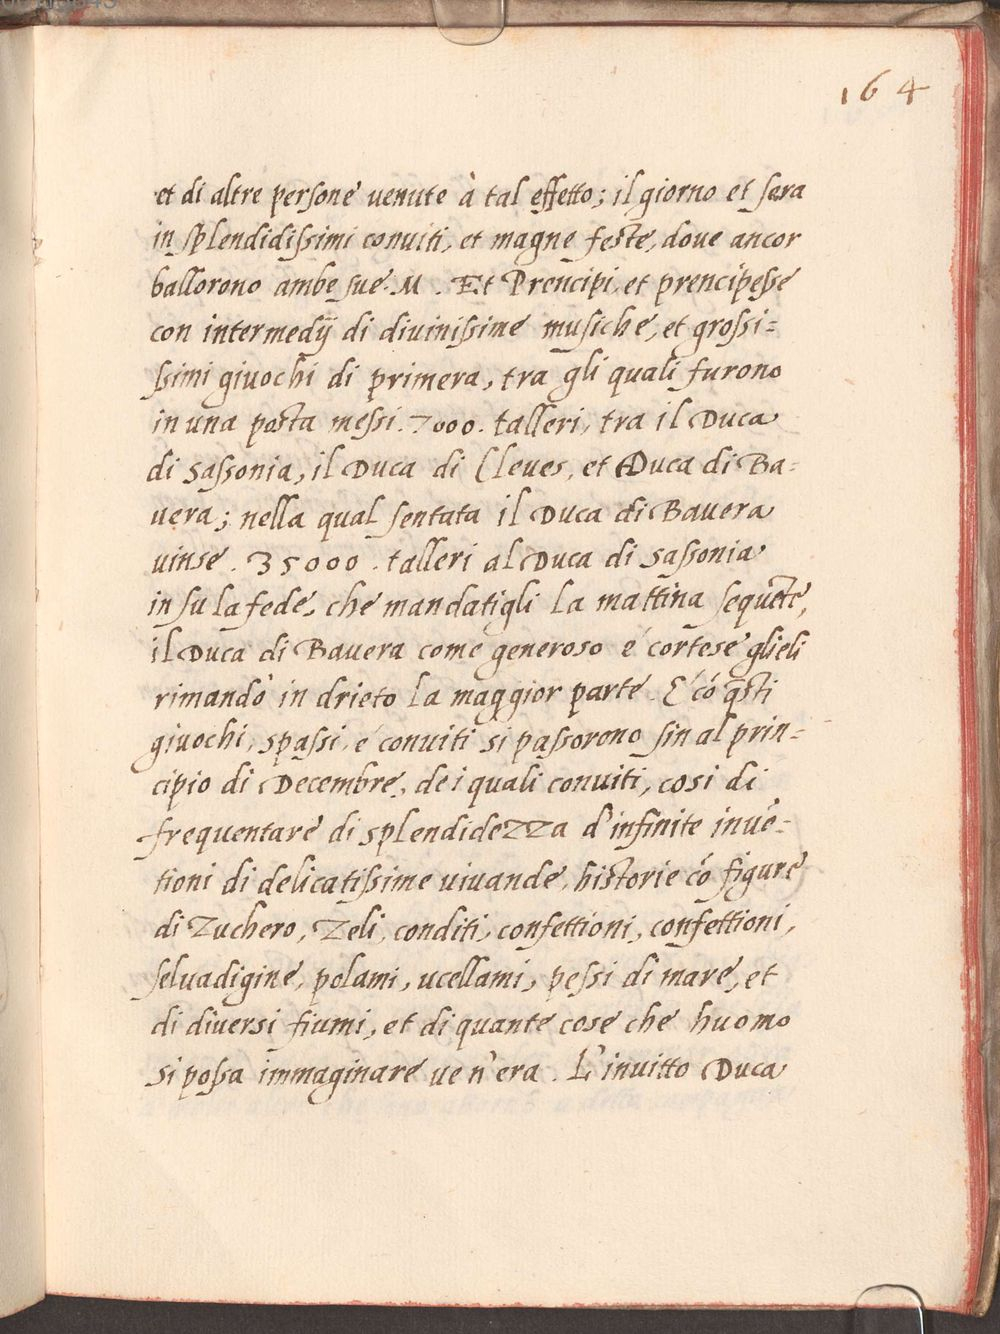 164
et di altre persone uenute à tal effetto; il giorno et sera
in splendidissimi conuiti, et magne feste, doue ancor
ballorono ambe sue. M. Et Prencipi, et prencipesse
con intermedij di diuinissime musiche, et grossi=
ssimi giuochi di primera, tra gli quali furono
in una posta messi. 7000. talleri, tra il Duca
di Sassonia, il Duca di Cleues, et Duca di Ba=
uera; nella qual sentata il Duca di Bauera
uinse. 35000. talleri al Duca di Sassonia
in su la fede, che mandatigli la mattina sequẽte,
il Duca di Bauera come generoso é cortese glieli
rimandò in drieto la maggior parte. E' có q̃sti
giuochi, spassi, é conuiti si passorono sin al prin=
cipio di Decembre, de i quali conuiti, cosi di
frequentare di splendidezza d'infinite inué=
tioni di delicatissime uiuande, historie có figure
di Zuchero, Zeli, conditi, confettioni, confettioni,
seluadigine, polami, ucellami, pessi di mare, et
di diuersi fiumi, et di quante cose che huomo
si possa immaginare ue n'era. L'inuitto Duca